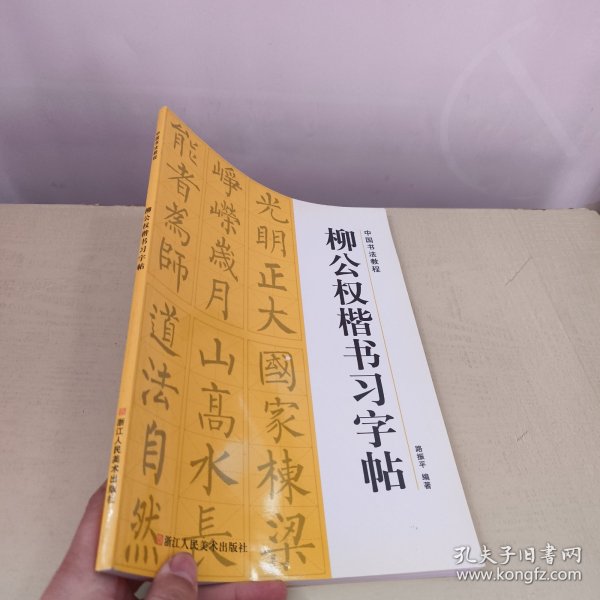 中国书法教程
柳公权楷书习字帖
路振平 编著
光明正大
國家棟梁
峥嵘歲月
山高水長
能者為師
道法自然
浙江人民美术出版社
中国书法教程
柳公权楷书习字帖
浙江人民美术出版社
孔夫子旧书网
www.kongfz.com